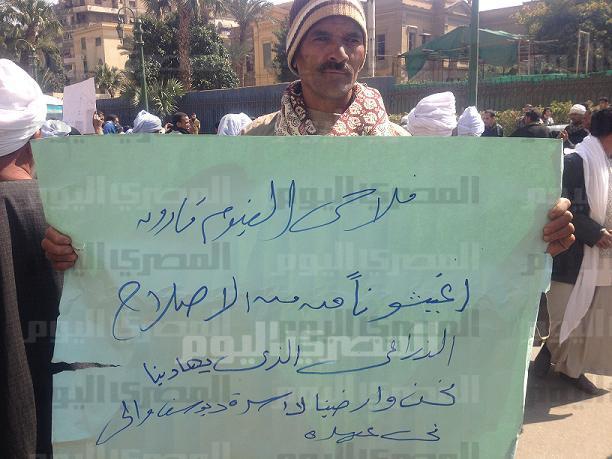 فلاحى الفيوم قارون
اغيثونا من الاصلاح
الزراعى الذى يهادينا
نحن وارضينا لا سرة يوسف والى
فى عهده
المصرى اليوم